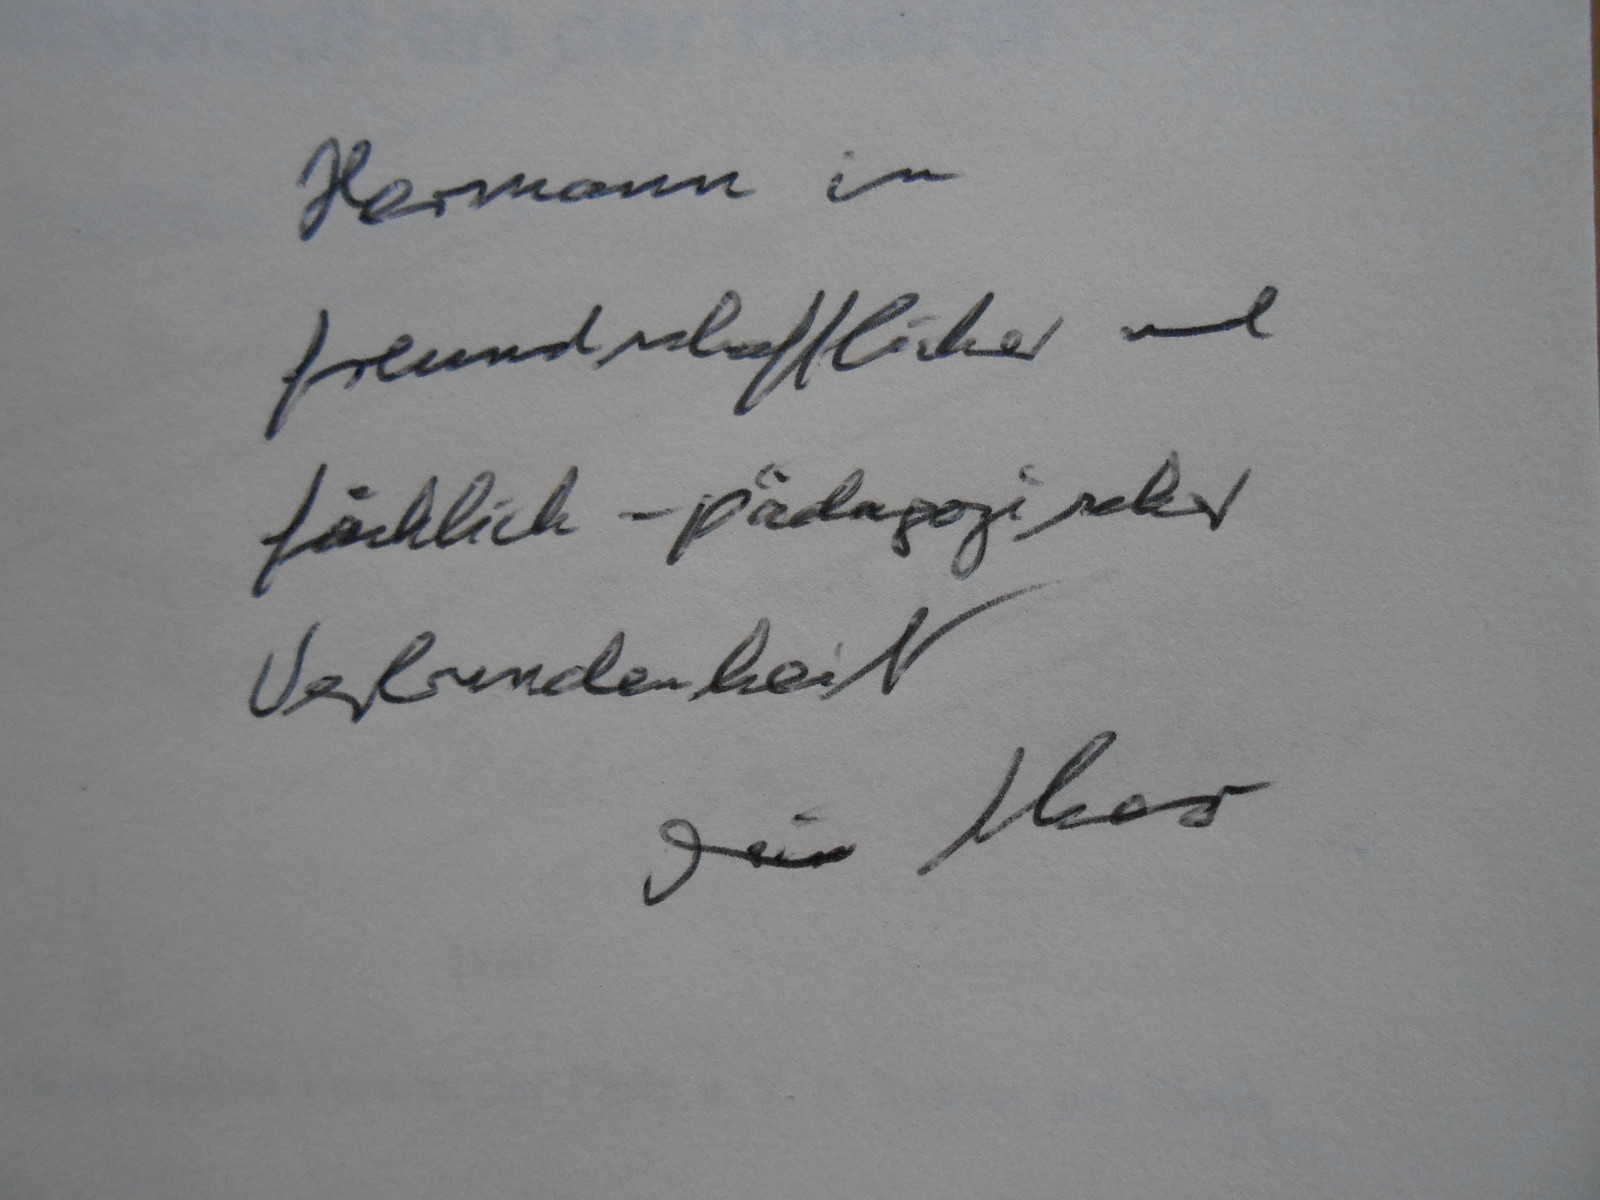 Hermann in
freundschaftlicher und
fachlich-pädagogischer
Verbundenheit
Dein